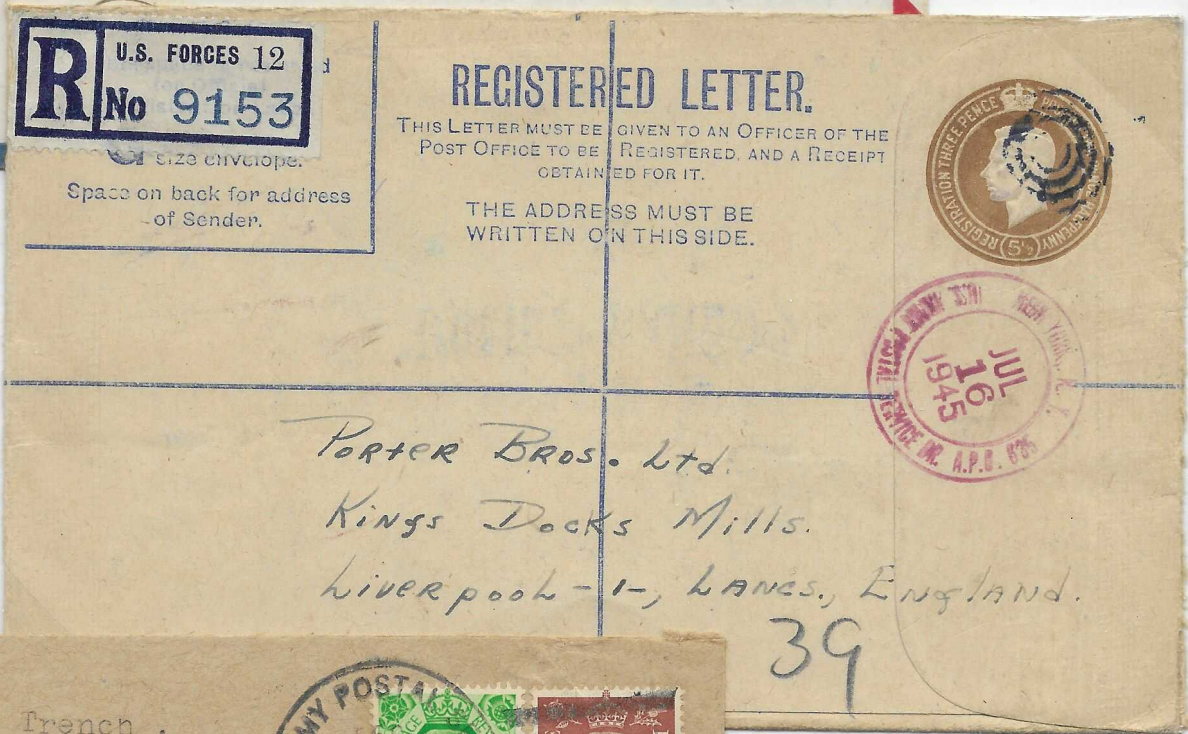 R
U.S. FORCES 12
No 9153
size envelope.
Space on back for address
of Sender.
REGISTERED LETTER.
THIS LETTER MUST BE GIVEN TO AN OFFICER OF THE
POST OFFICE TO BE REGISTERED, AND A RECEIPT
OBTAINED FOR IT.
THE ADDRESS MUST BE
WRITTEN ON THIS SIDE.
REGISTRATION THREE PENCE
(5½)
NEW YORK, N. Y.
POSTAL SERVICE
A.P.O.
JUL
16
1945
Porter Bros. Ltd.
Kings Docks Mills.
Liverpool-1-, Lancs., England.
39
MY POSTAL
Trench.